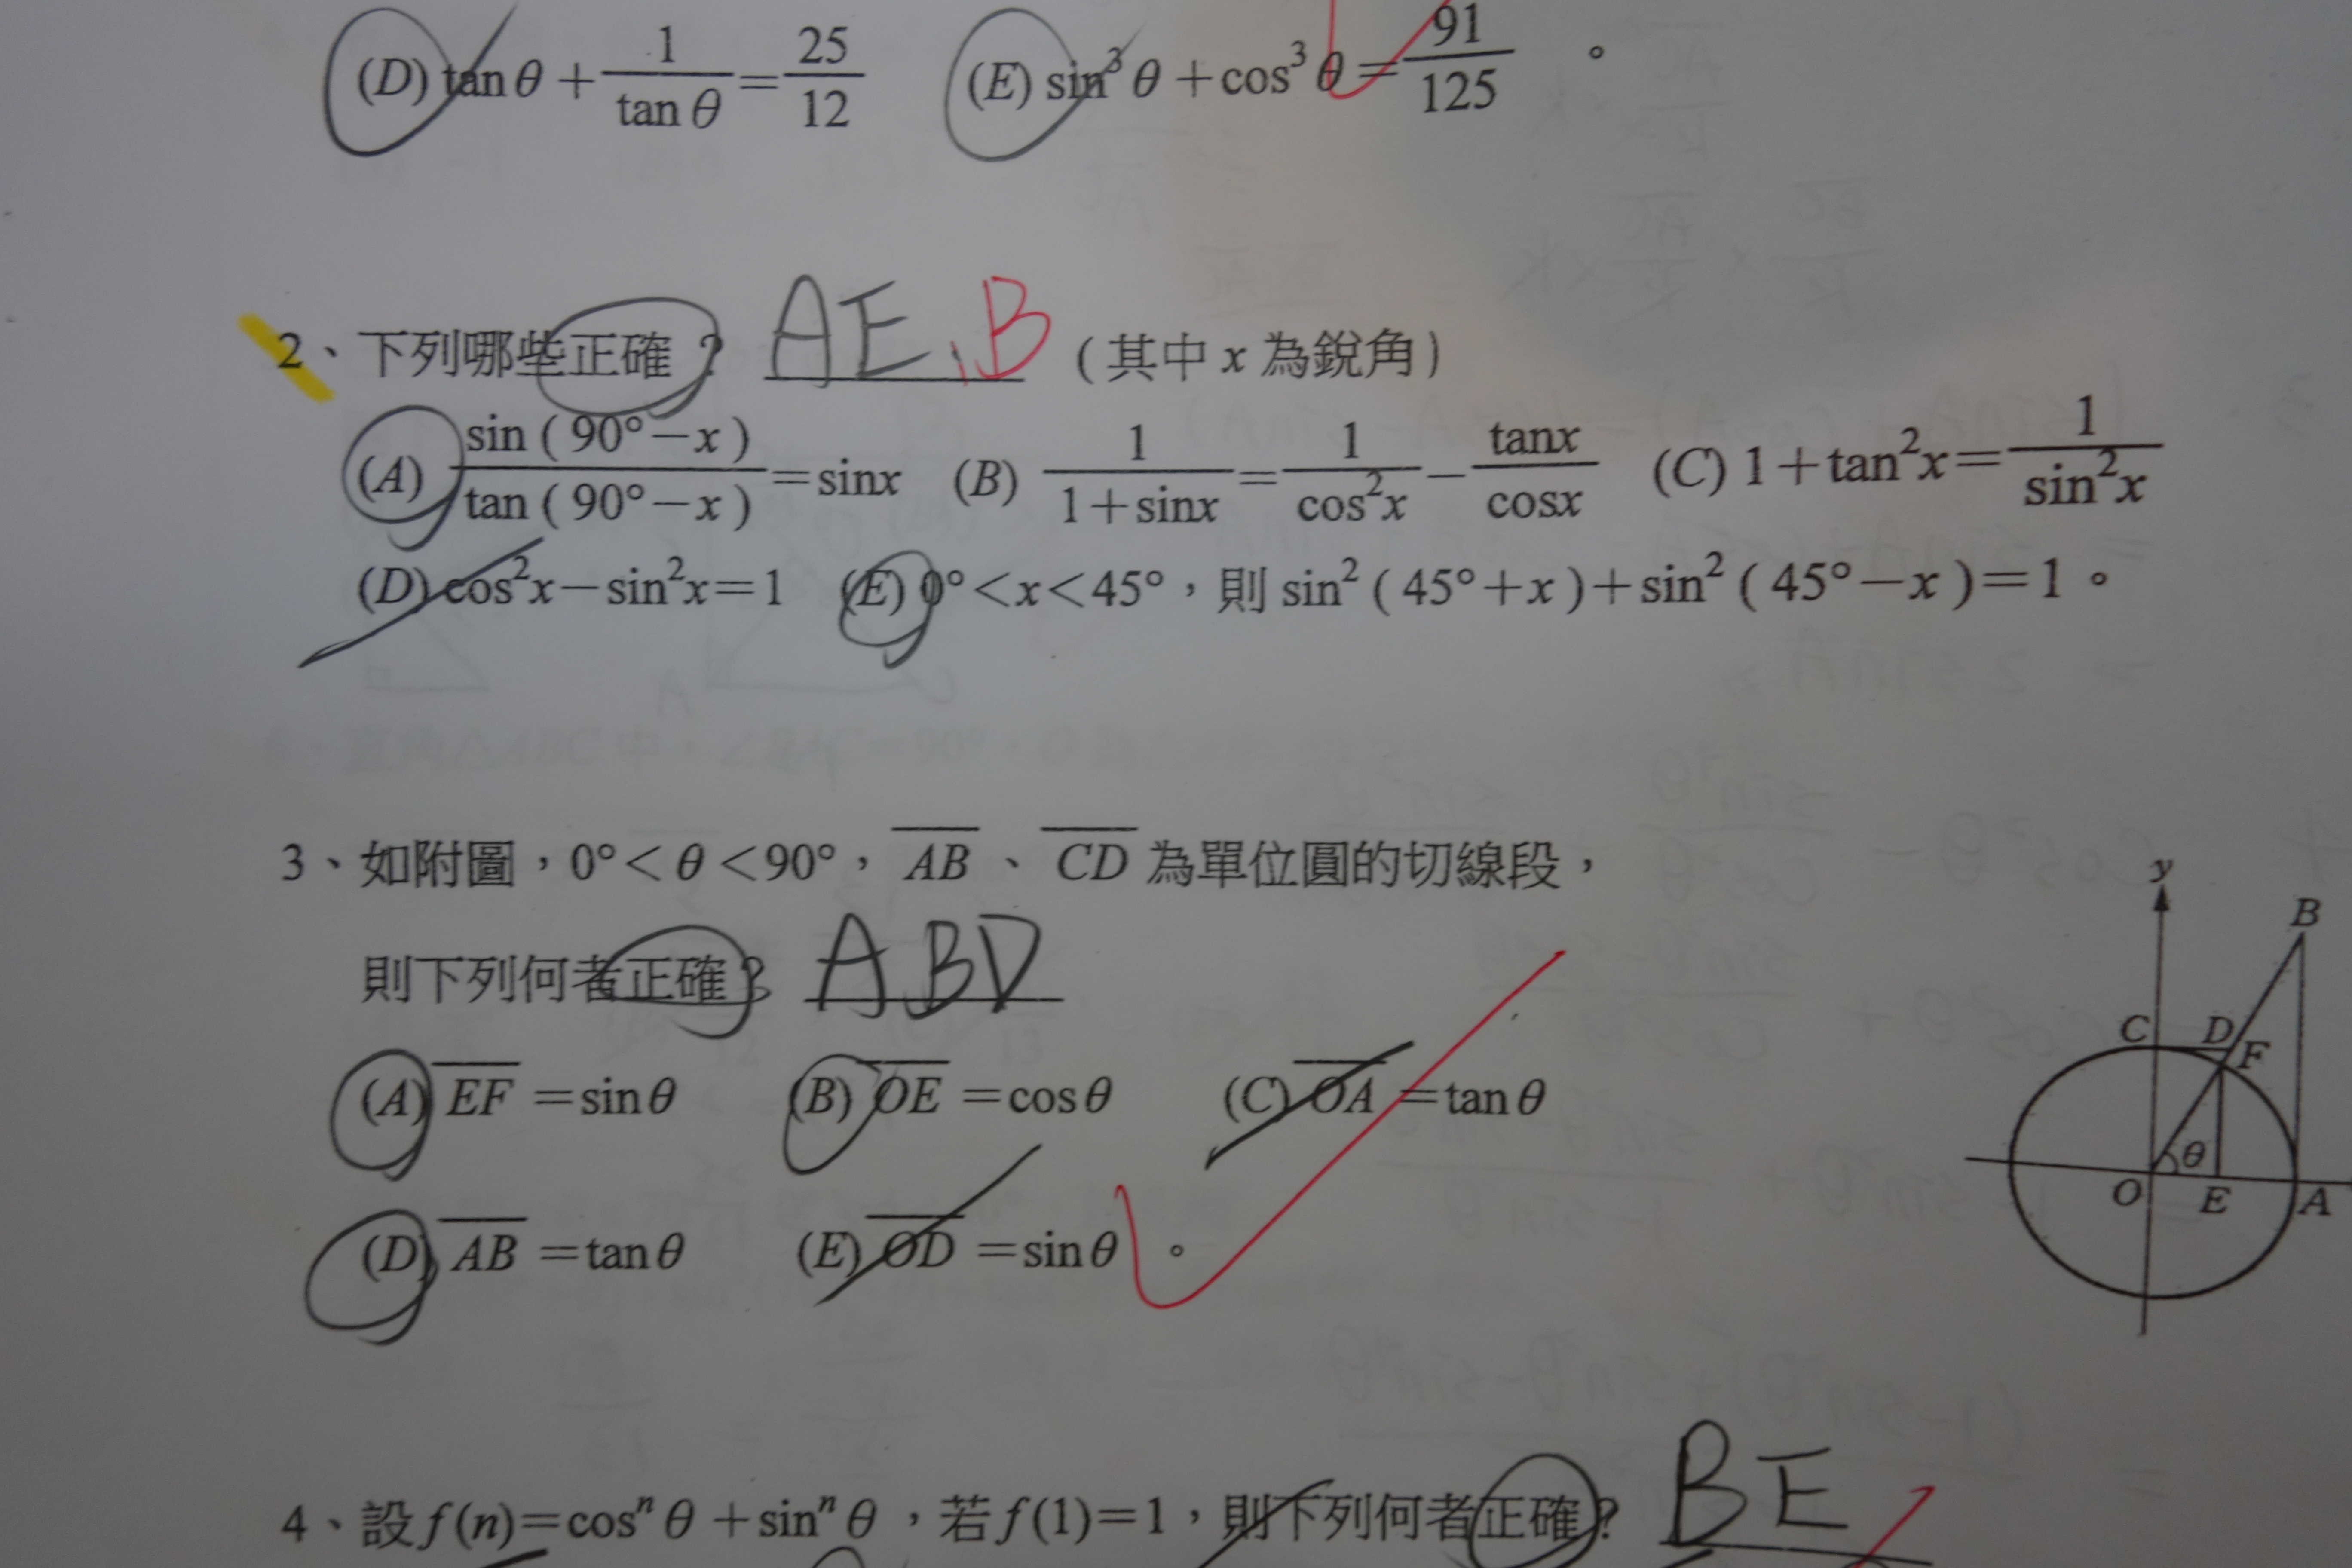 (D) tanθ + 1/tanθ = 25/12 (E) sin³θ + cos³θ = 91/125 。
2、下列哪些正確? AE、B (其中 x 為銳角)
(A) sin(90°−x)/tan(90°−x) = sinx (B) 1/(1+sinx) = 1/cos²x − tanx/cosx (C) 1+tan²x = 1/sin²x
(D) cos²x−sin²x=1 (E) 0°<x<45°,則 sin²(45°+x)+sin²(45°−x)=1。
3、如附圖,0°<θ<90°,AB、CD 為單位圓的切線段,
則下列何者正確? ABD
(A) EF = sinθ (B) OE = cosθ (C) OA = tanθ
(D) AB = tanθ (E) OD = sinθ 。
y
B
C D F
θ
O E A
4、設 f(n)=cosⁿθ+sinⁿθ,若 f(1)=1,則下列何者正確? BE